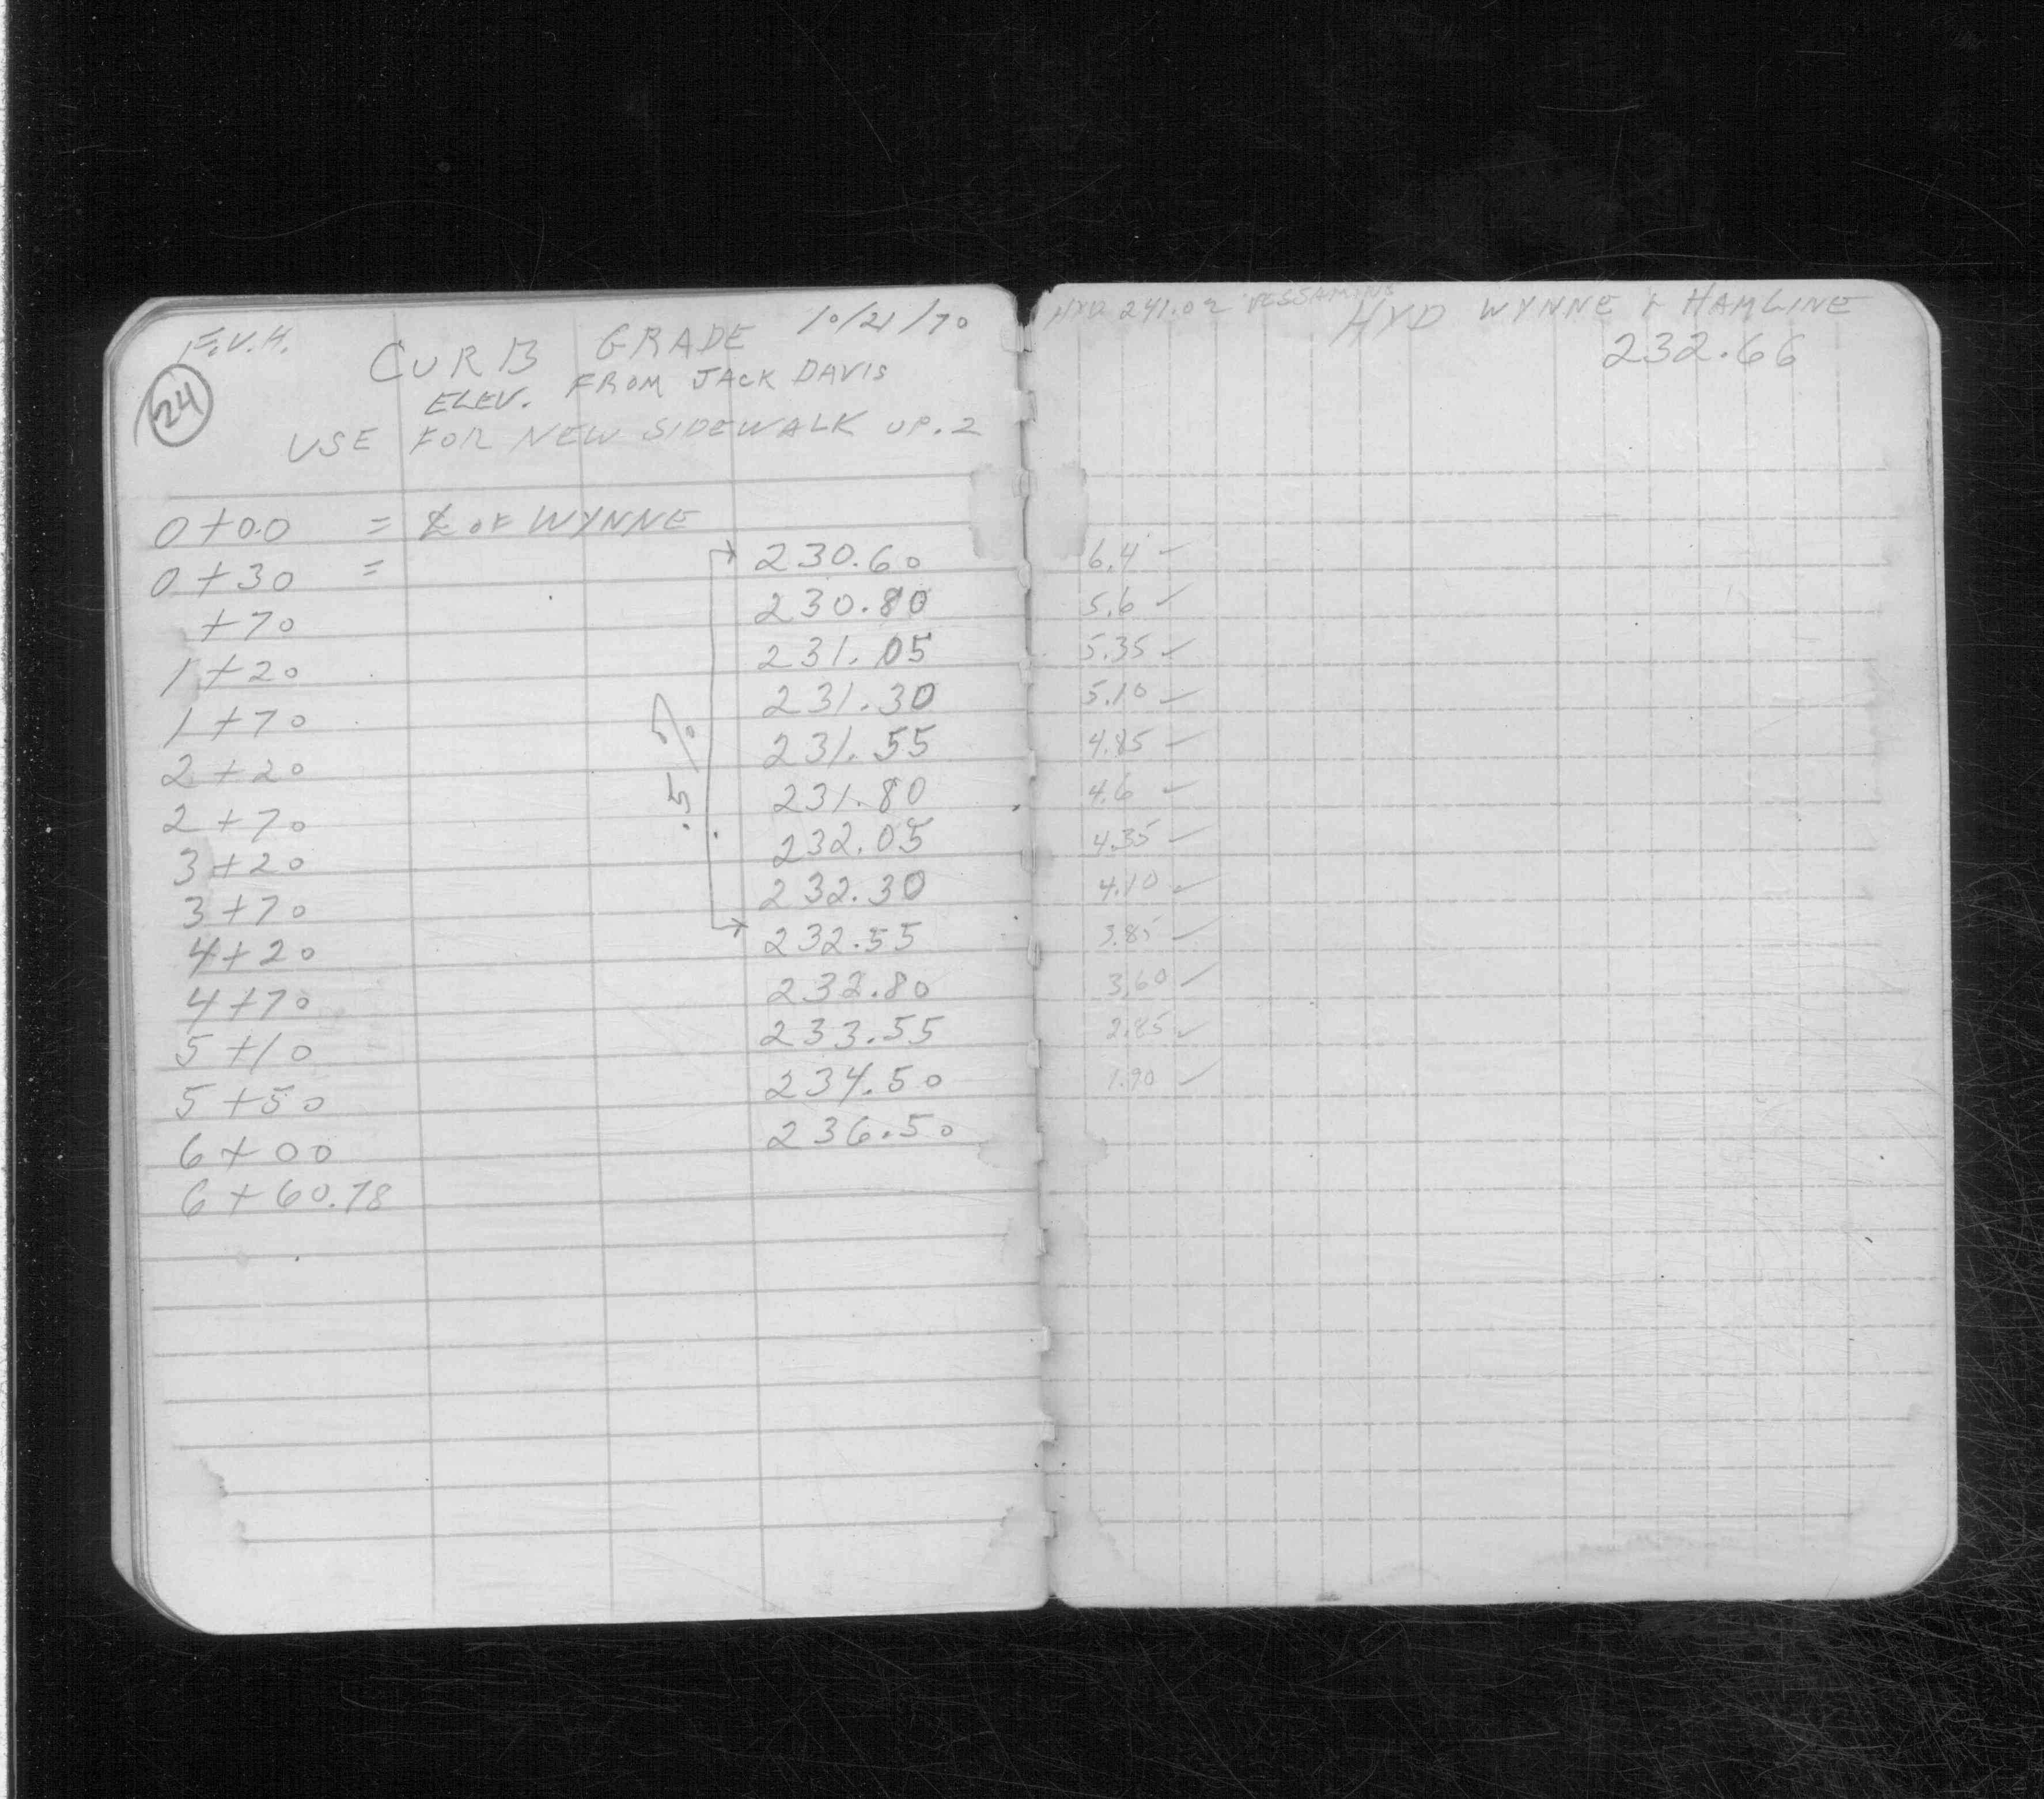 F.V.H. 10/21/70
24 CURB GRADE
ELEV. FROM JACK DAVIS
USE FOR NEW SIDEWALK UP .2
0+0.0 = ℄ OF WYNNE
0+30 = 230.60 6.4 ✓
+70 230.80 5.6 ✓
1+20 231.05 5.35 ✓
1+70 231.30 5.10 ✓
2+20 231.55 4.85 ✓
2+70 231.80 4.6 ✓
3+20 232.05 4.35 ✓
3+70 232.30 4.10 ✓
4+20 232.55 3.85 ✓
4+70 232.80 3.60 ✓
5+10 233.55 2.85 ✓
5+50 234.50 1.90 ✓
6+00 236.50
6+60.78
.5%
HYD 241.02
HYD WYNNE & HAMLINE
232.66